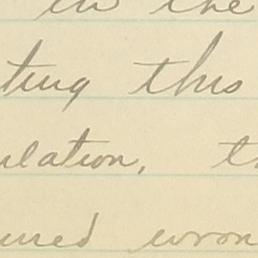 in the
ting this
ulation, th
ured wron